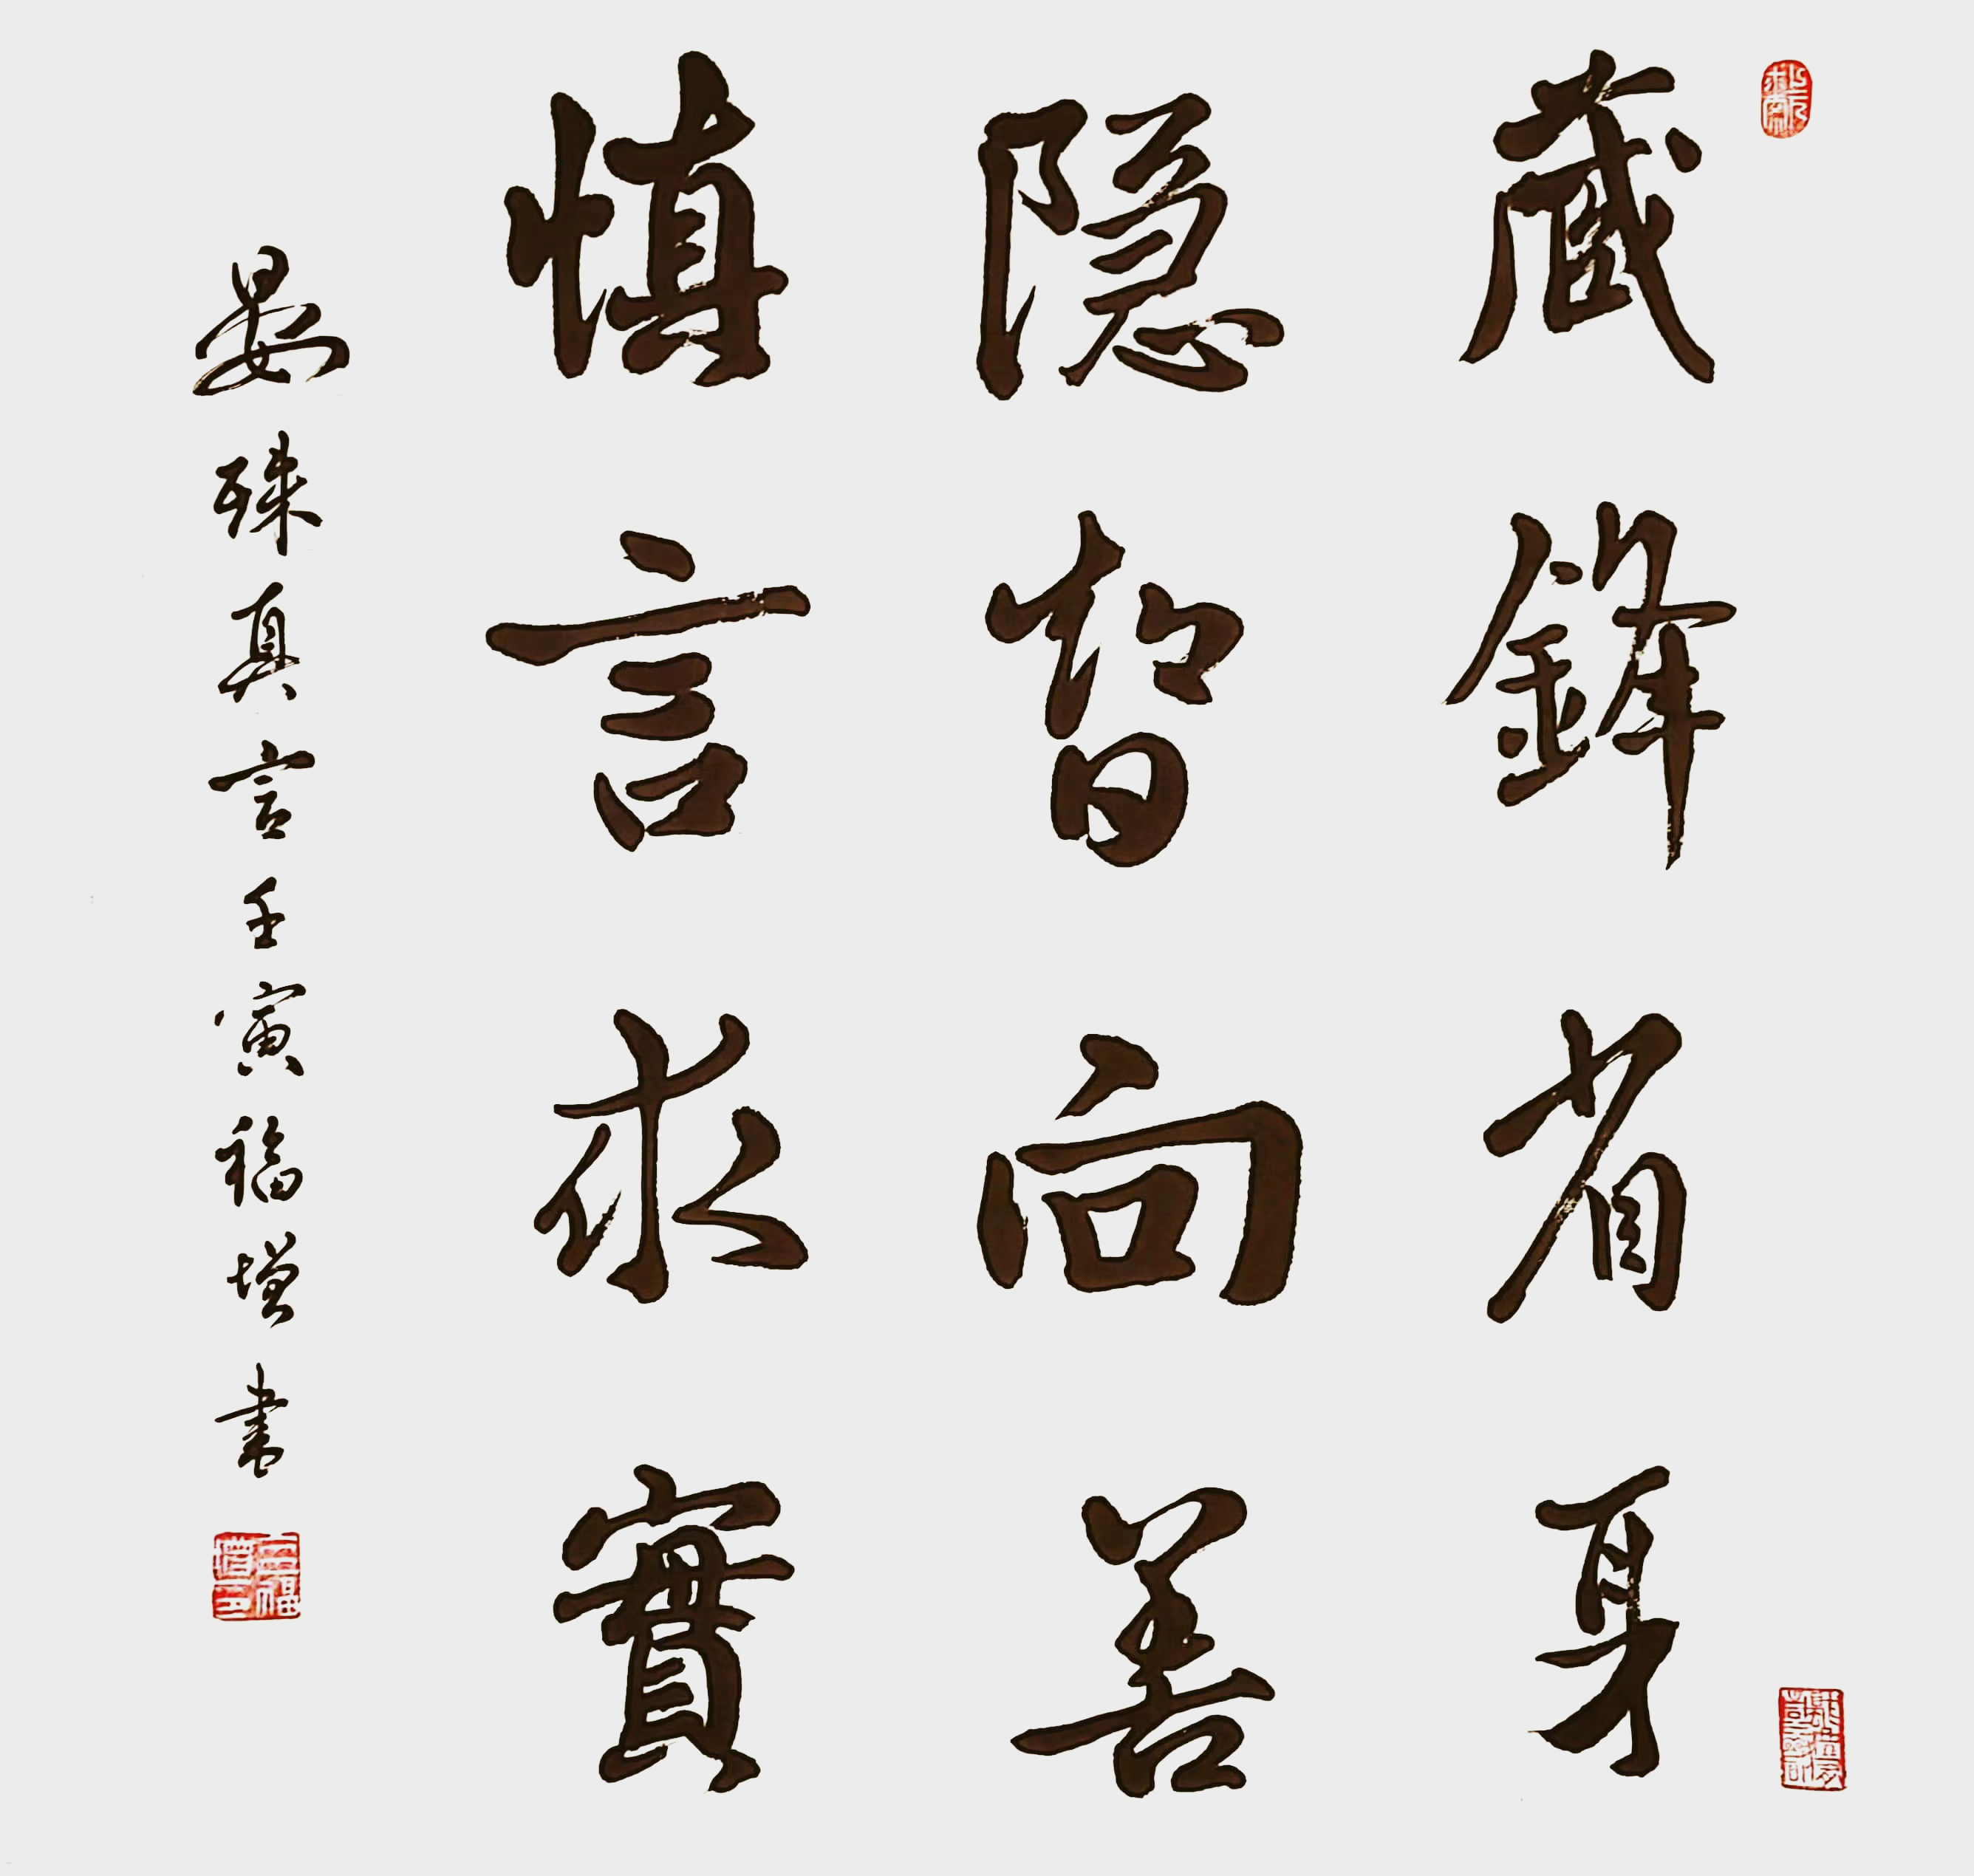 藏鋒省身
隐智向善
慎言求實
晏殊真言壬寅福增书